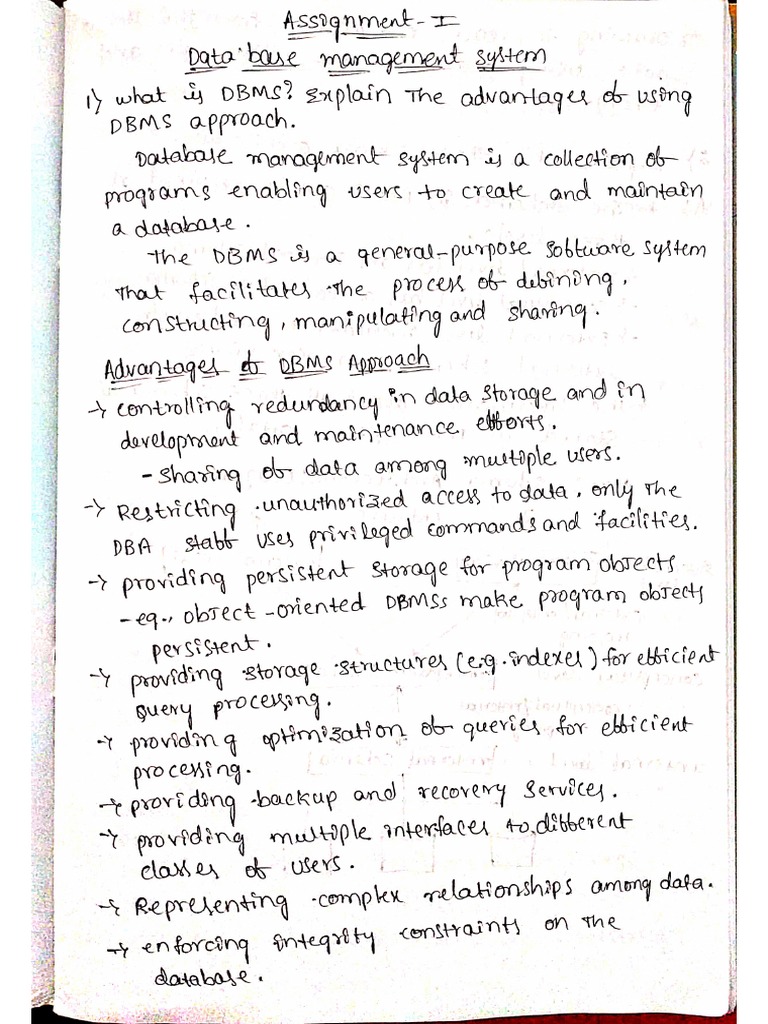 Assignment-I
Data base management system
1) what is DBMS? Explain The advantages of using
DBMS approach.
Database management system is a collection of
programs enabling users to create and maintain
a database.
The DBMS is a general-purpose software system
That facilitates the process of defining,
constructing, manipulating and sharing.
Advantages of DBMS Approach
→ controlling redundancy in data storage and in
development and maintenance efforts.
- Sharing of data among multiple users.
→ Restricting unauthorized access to data. only The
DBA staff uses privileged commands and facilities.
→ providing persistent storage for program objects
- eg., object-oriented DBMSs make program objects
persistent.
→ providing storage structures (e.g. indexes) for efficient
query processing.
→ providing optimization of queries for efficient
processing.
→ providing backup and recovery services.
→ providing multiple interfaces to different
classes of users.
→ Representing complex relationships among data.
→ enforcing integrity constraints on the
database.